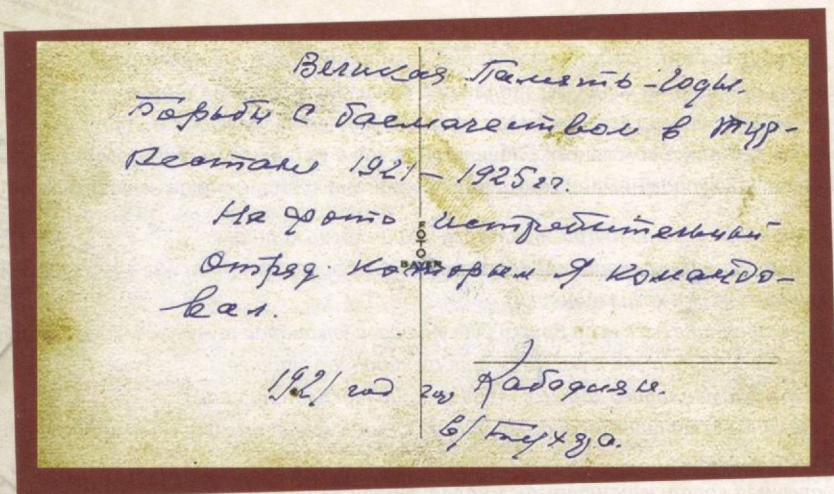 Великая Память - Годы.
Борьбы с басмачеством в Тур-
кестане 1921 - 1925 гг.
На фото истребительный
отряд которым я командо-
вал.
1921 год гор Кабадиян.
в/Бухара.
FOTO
BAYER